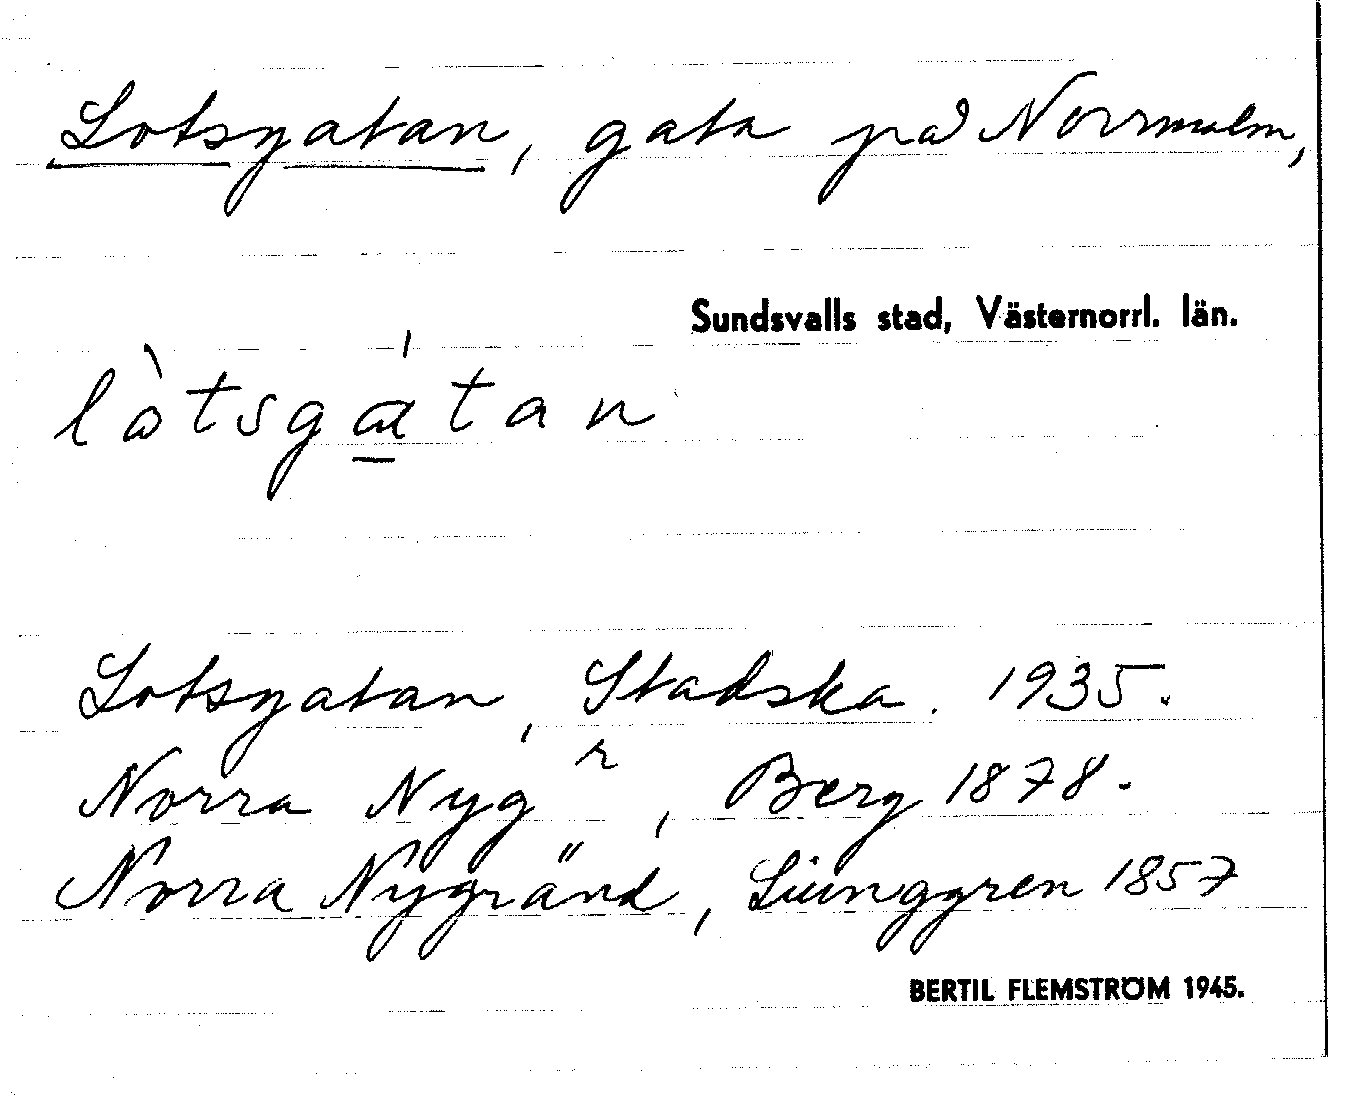 Lotsgatan, gata på Norrmalm,
Sundsvalls stad, Västernorrl. län.
lòtsgɑ́tan
Lotsgatan, Stadska. 1935.
Norra Nyg r, Berg 1878.
Norra Nygränd, Ljunggren 1857
BERTIL FLEMSTRÖM 1945.